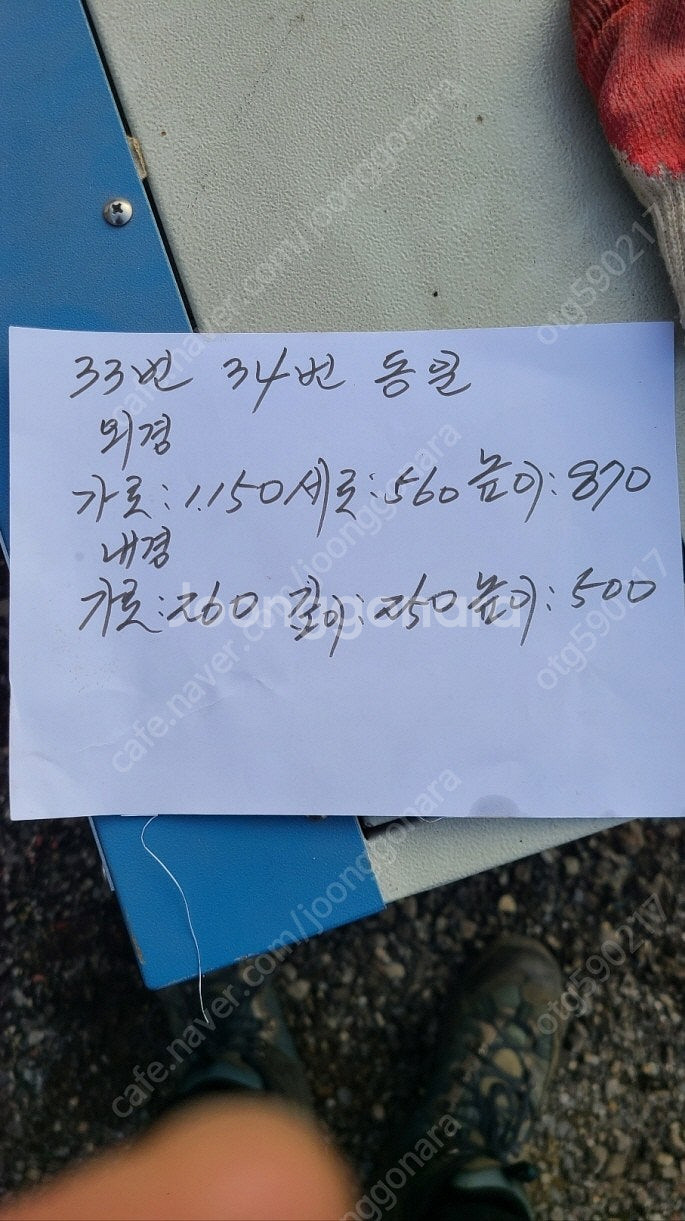 33번 34번 동일
외경
가로:1.150 세로:560 높이:870
내경
가로:260 깊이:250 높이:500
joonggonara
cafe.naver.com/joonggonara
otg590217
cafe.naver.com/joonggonara
otg590217
cafe.naver.com/joonggonara
otg590217
joonggonara